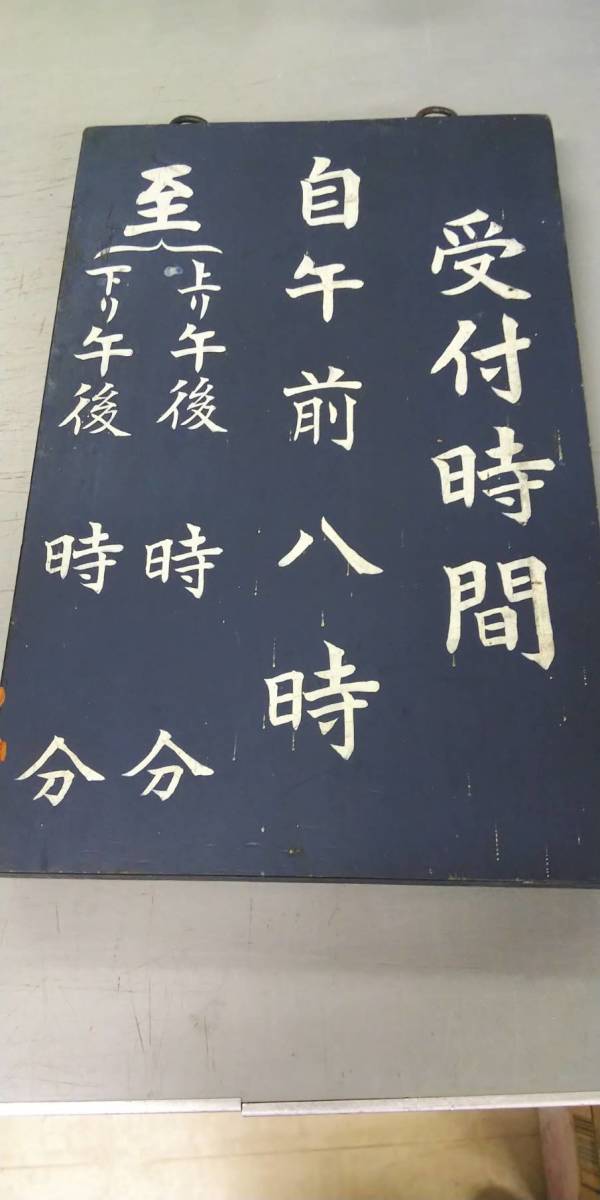 受付時間
自午前八時
至
上り午後 時 分
下り午後 時 分